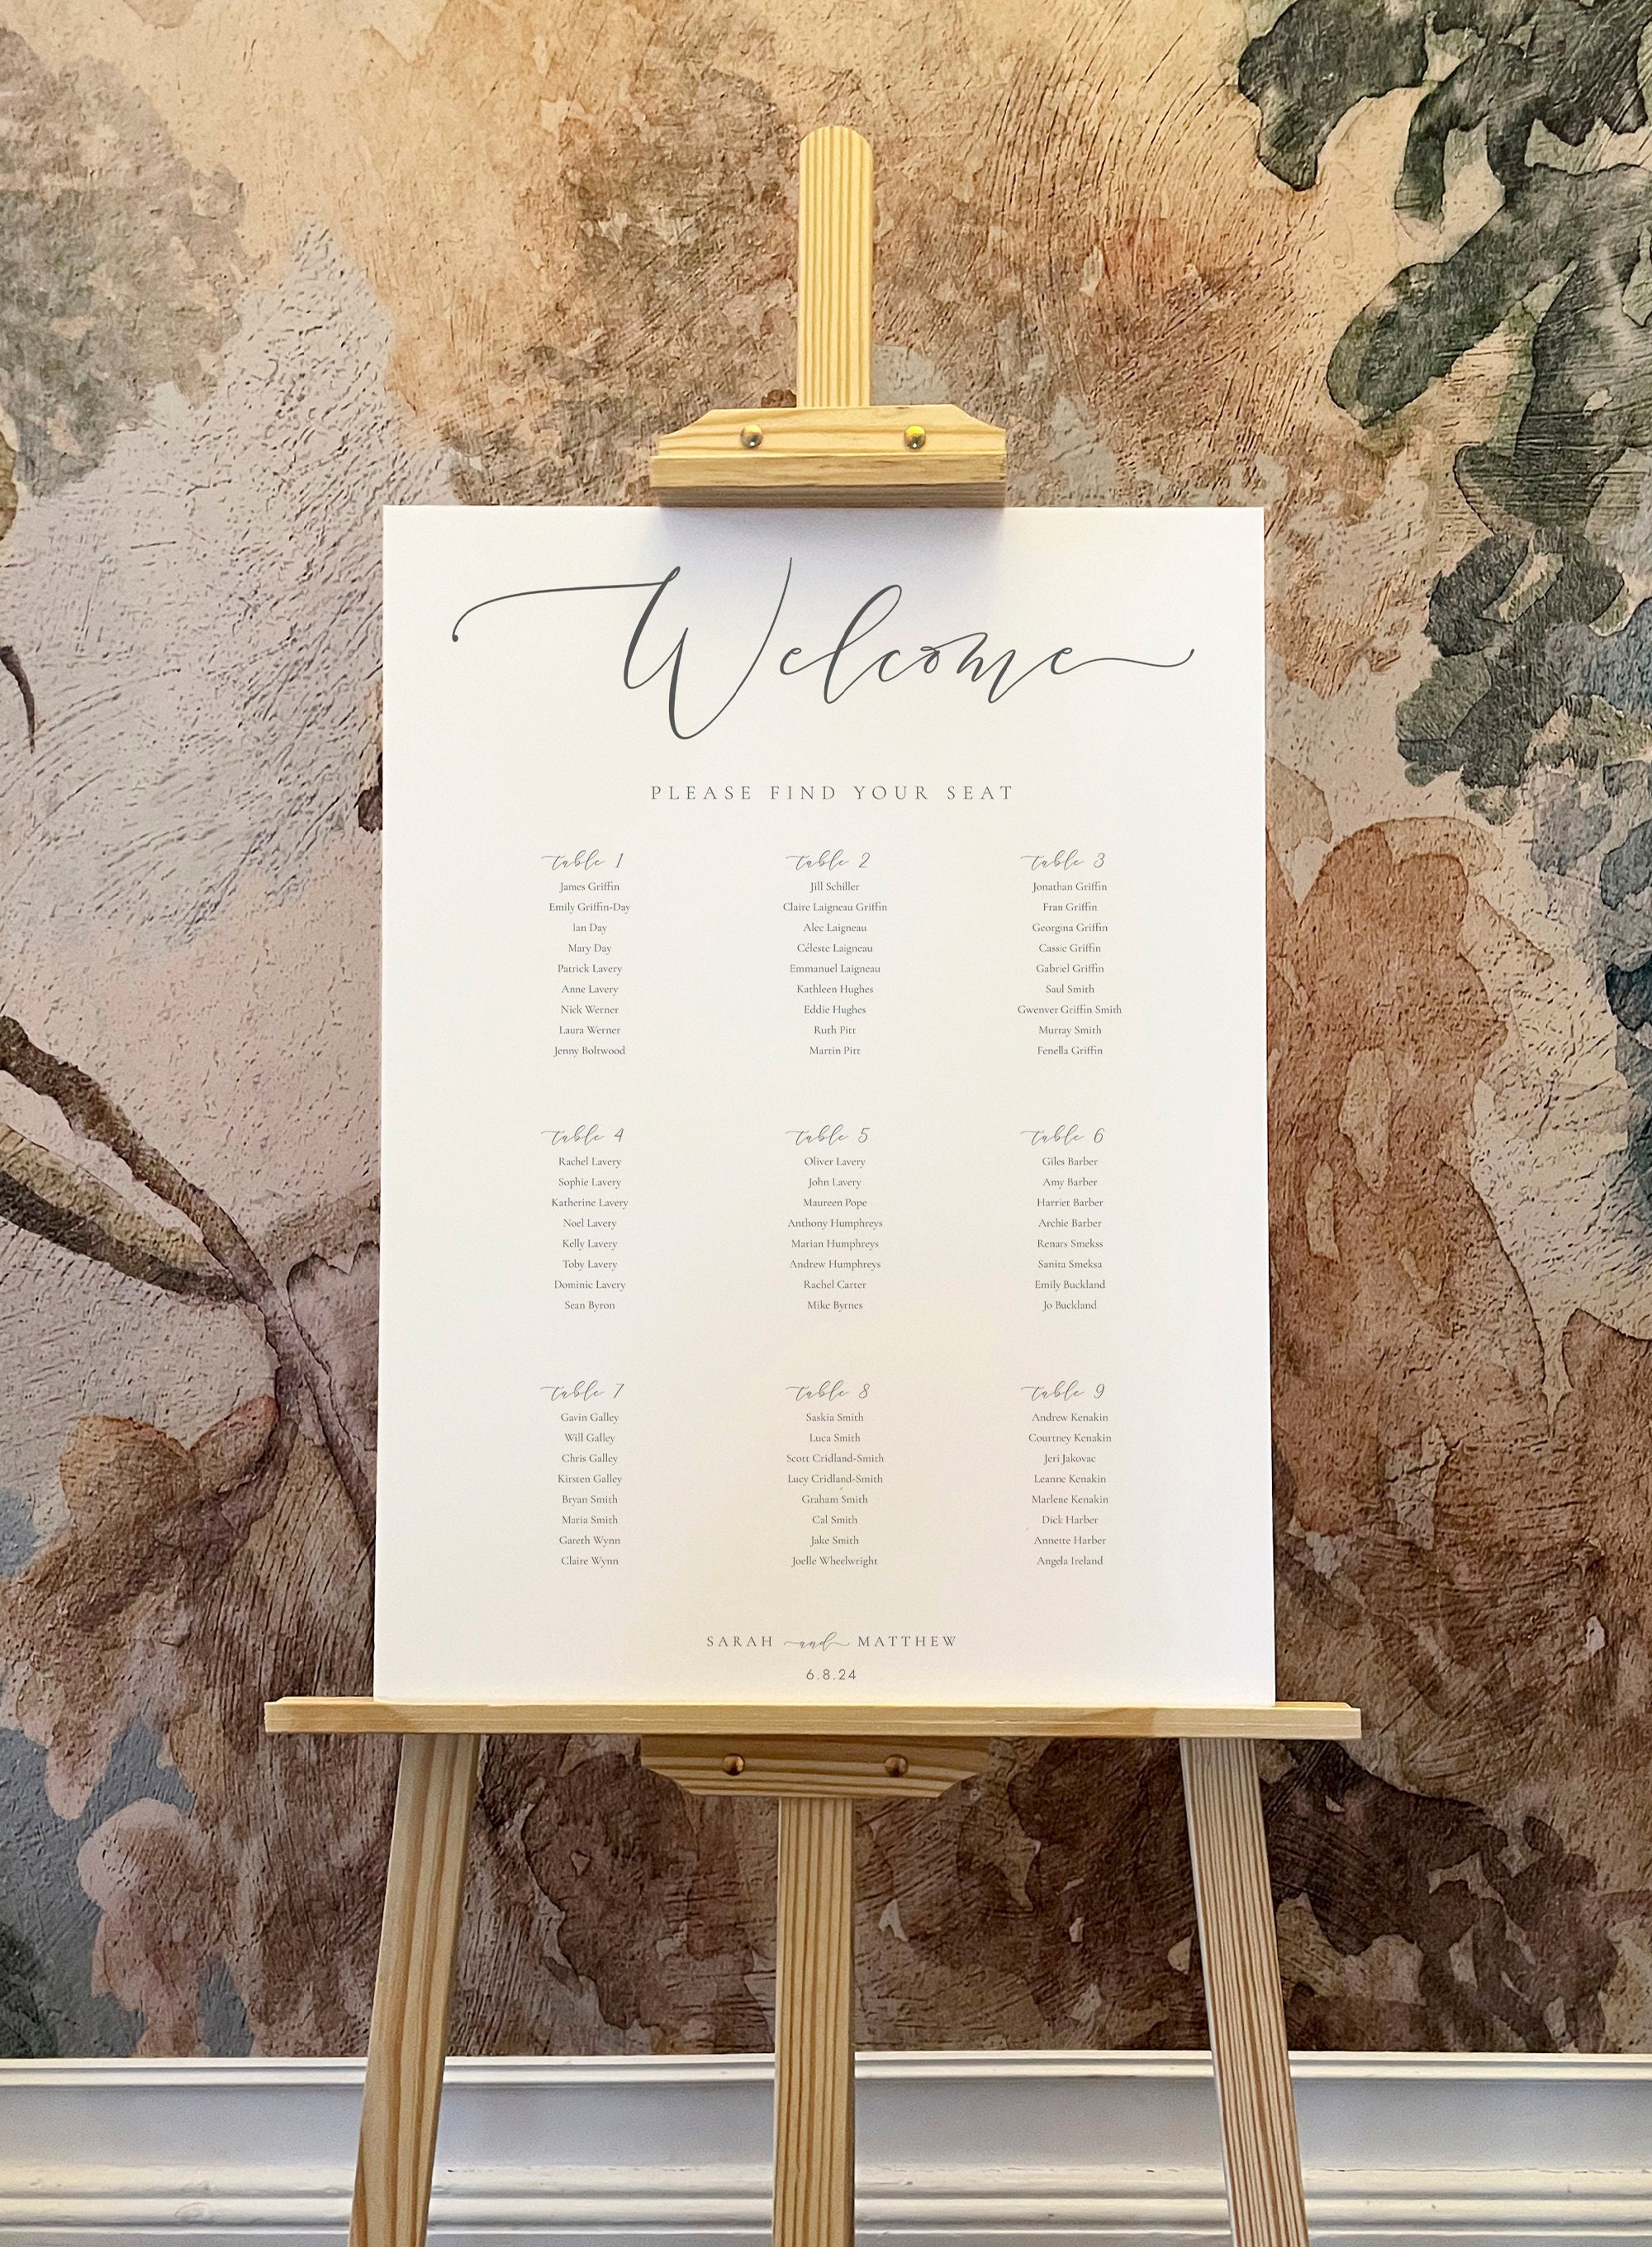 Welcome
PLEASE FIND YOUR SEAT
table 1
James Griffin
Emily Griffin-Day
Ian Day
Mary Day
Patrick Lavery
Anne Lavery
Nick Werner
Laura Werner
Jenny Boltwood
table 2
Jill Schiller
Claire Laigneau Griffin
Alec Laigneau
Céleste Laigneau
Emmanuel Laigneau
Kathleen Hughes
Eddie Hughes
Ruth Pitt
Martin Pitt
table 3
Jonathan Griffin
Fran Griffin
Georgina Griffin
Cassie Griffin
Gabriel Griffin
Saul Smith
Gwenver Griffin Smith
Murray Smith
Fenella Griffin
table 4
Rachel Lavery
Sophie Lavery
Katherine Lavery
Noel Lavery
Kelly Lavery
Toby Lavery
Dominic Lavery
Sean Byron
table 5
Oliver Lavery
John Lavery
Maureen Pope
Anthony Humphreys
Marian Humphreys
Andrew Humphreys
Rachel Carter
Mike Byrnes
table 6
Giles Barber
Amy Barber
Harriet Barber
Archie Barber
Renars Smekss
Sanita Smeksa
Emily Buckland
Jo Buckland
table 7
Gavin Galley
Will Galley
Chris Galley
Kirsten Galley
Bryan Smith
Maria Smith
Gareth Wynn
Claire Wynn
table 8
Saskia Smith
Luca Smith
Scott Cridland-Smith
Lucy Cridland-Smith
Graham Smith
Cal Smith
Jake Smith
Joelle Wheelwright
table 9
Andrew Kenakin
Courtney Kenakin
Jeri Jakovac
Leanne Kenakin
Marlene Kenakin
Dick Harber
Annette Harber
Angela Ireland
SARAH and MATTHEW
6.8.24